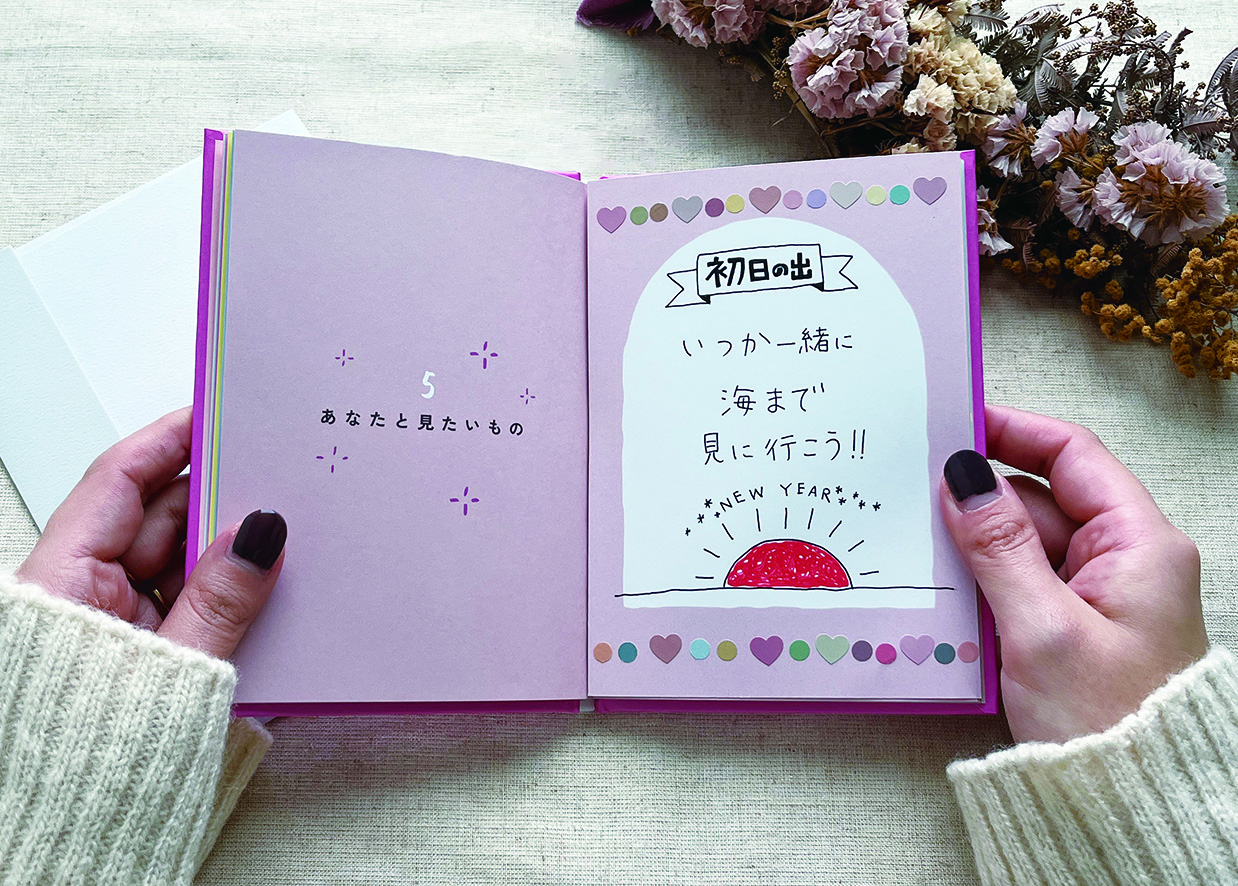 5
あなたと見たいもの
初日の出
いつか一緒に
海まで
見に行こう!!
NEW YEAR